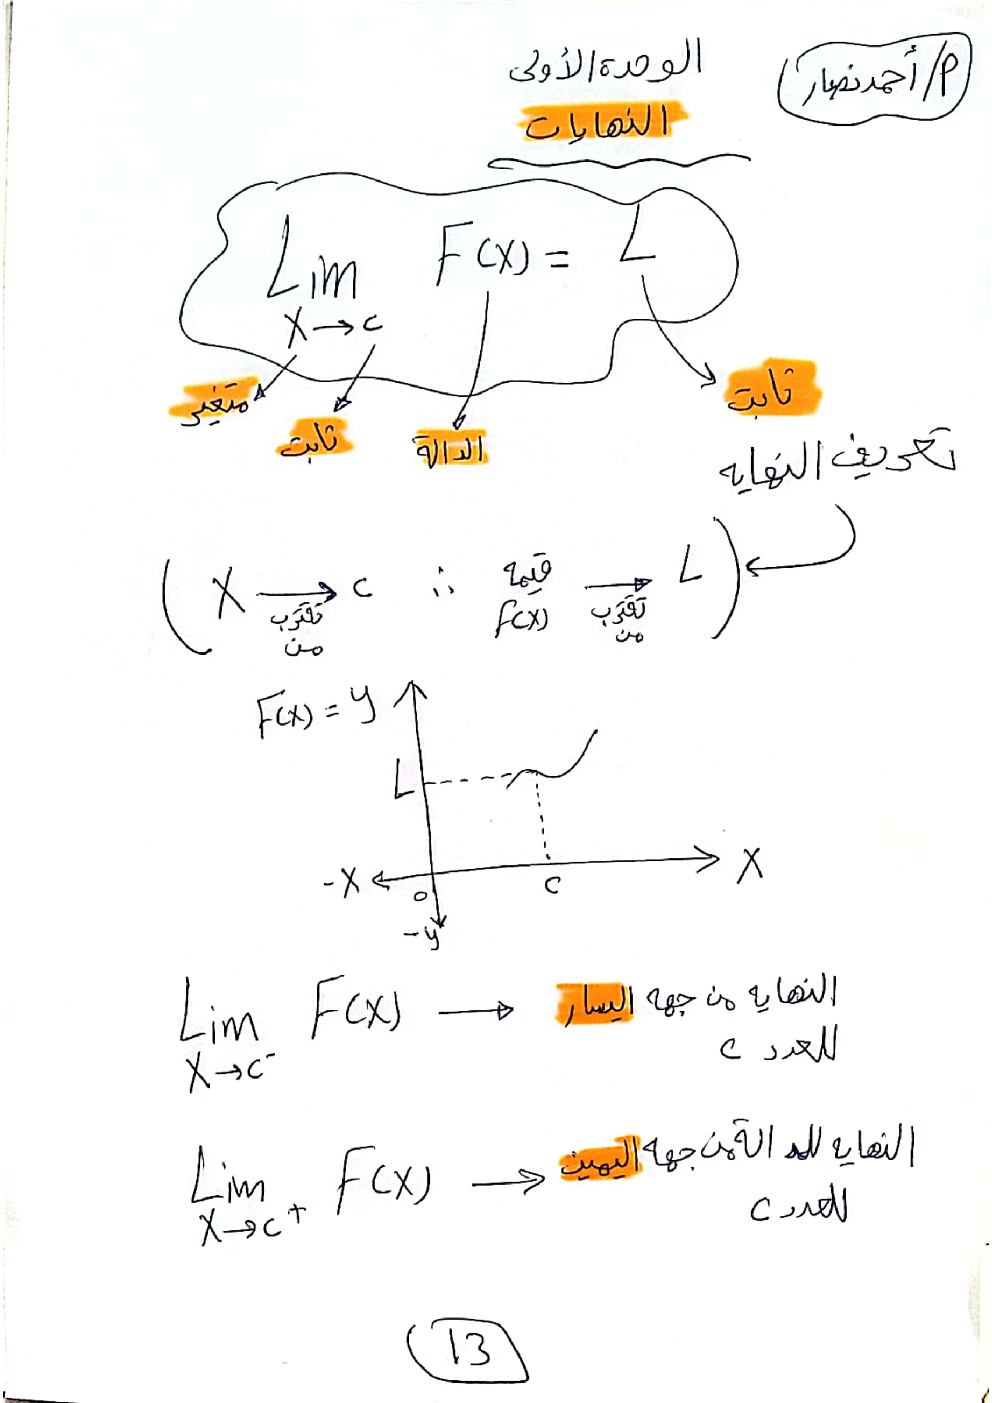 م/أحمد نصار
الوحدة الأولى
النهايات
Lim F(x) = L
x→c
متغير ثابت الدالة ثابت
تعريف النهايه
(x → c ∴ قيمة → L)
تقترب من F(x) تقترب من
F(x) = y
L
-x 0 c x
-y
Lim F(x) → النهايه من جهه اليسار
x→c⁻ للعدد c
Lim F(x) → النهايه للدالة من جهه اليمين
x→c⁺ للعدد c
13